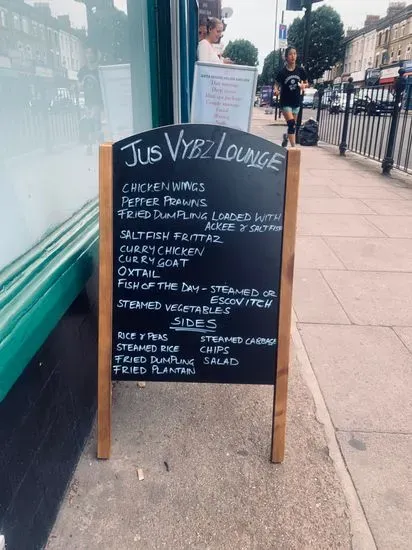 Jus Vybz Lounge
Chicken Wings
Pepper Prawns
Fried Dumpling Loaded with
Ackee & Saltfish
Saltfish Frittaz
Curry Chicken
Curry Goat
Oxtail
Fish of the Day - Steamed or
Escovitch
Steamed Vegetables
Sides
Rice & Peas
Steamed Rice
Fried Dumpling
Fried Plantain
Steamed Cabbage
Chips
Salad